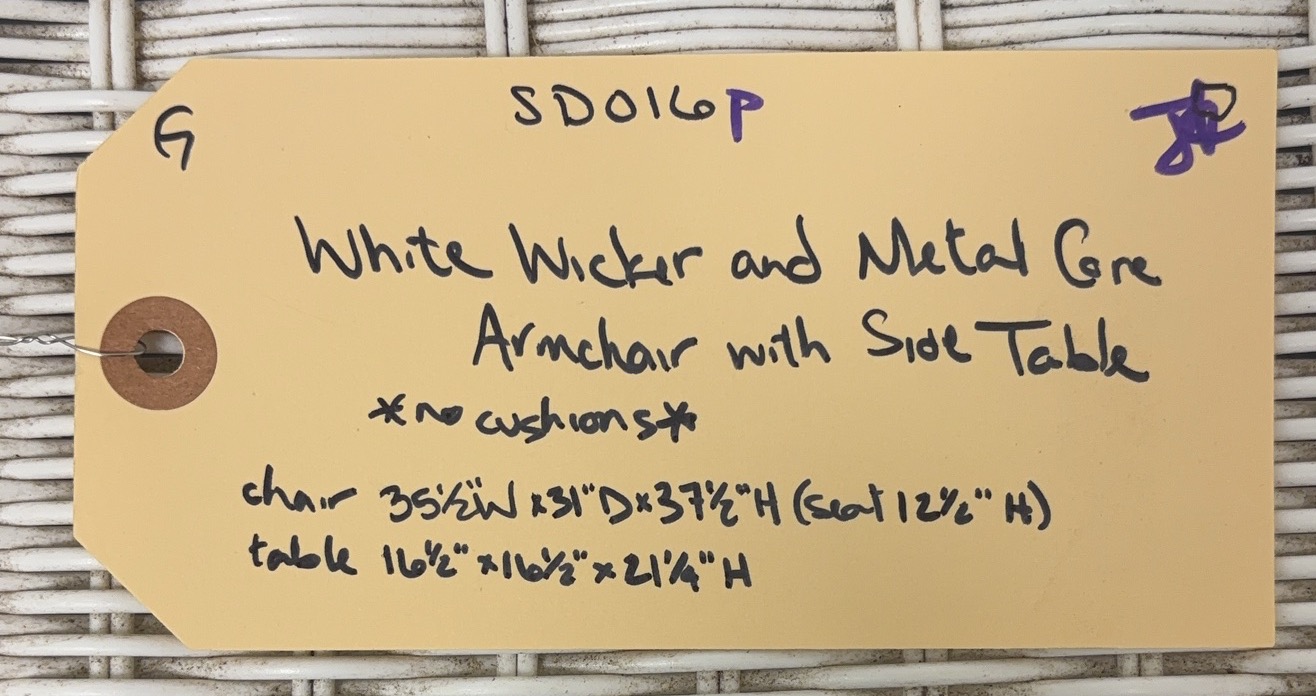 G SD016P
White Wicker and Metal Core
Armchair with Side Table
*no cushions*
chair 35½"W x 31"D x 37½"H (seat 12½" H)
table 16½" x 16½" x 21¼" H